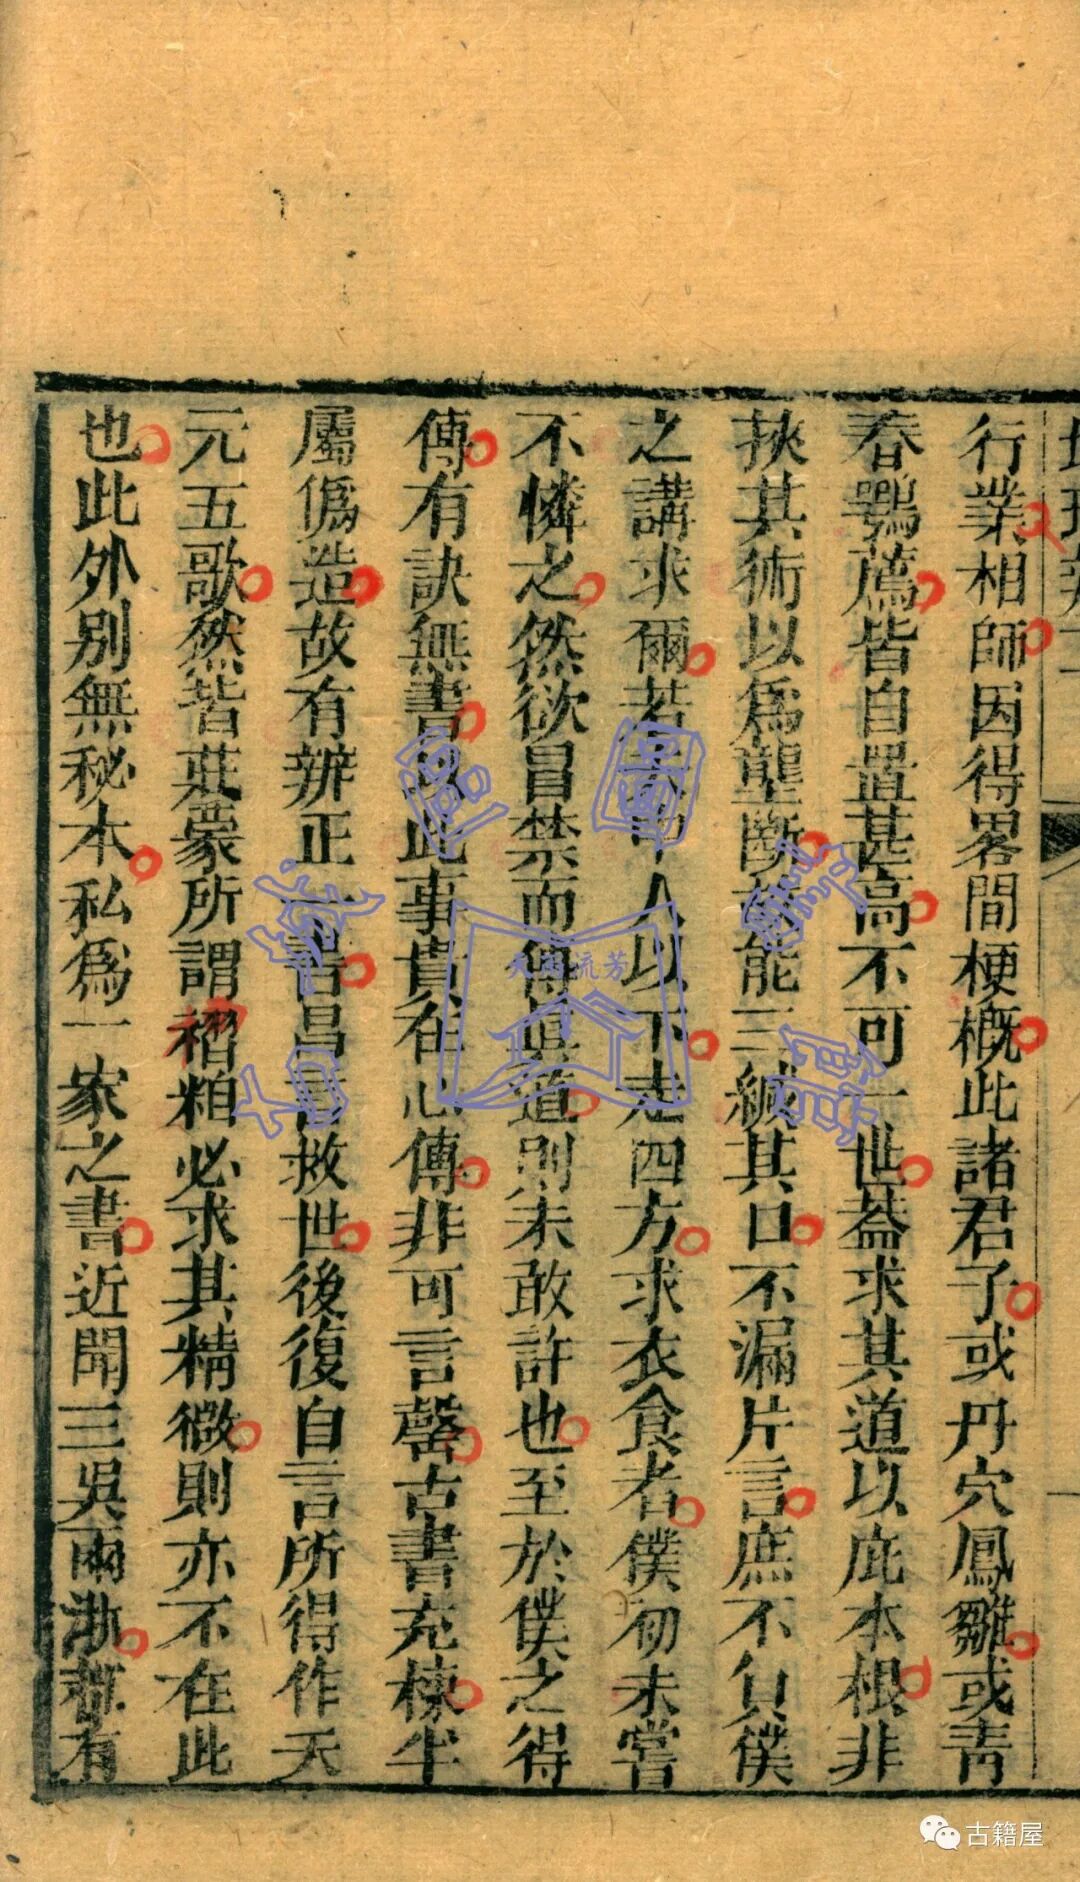 行業相師因得畧間梗概此諸君子或丹穴鳳雛或靑
春鶚薦皆自置甚高不可一世葢求其道以庇本根非
挾其術以爲壟斷故能三緘其口不漏片言庶不負僕
之講求爾若夫中人以下走四方求衣食者僕初未嘗
不憐之然欲冒禁而傳眞道則未敢許也至於僕之得
傳有訣無書以此事貴在心傳非可言罄古書充棟半
屬僞造故有辨正一書昌言救世後復自言所得作天
元五歌然皆莊蒙所謂褶粕必求其精微則亦不在此
也此外別無秘本私爲一家之書近聞三吳兩浙都有
古籍屋